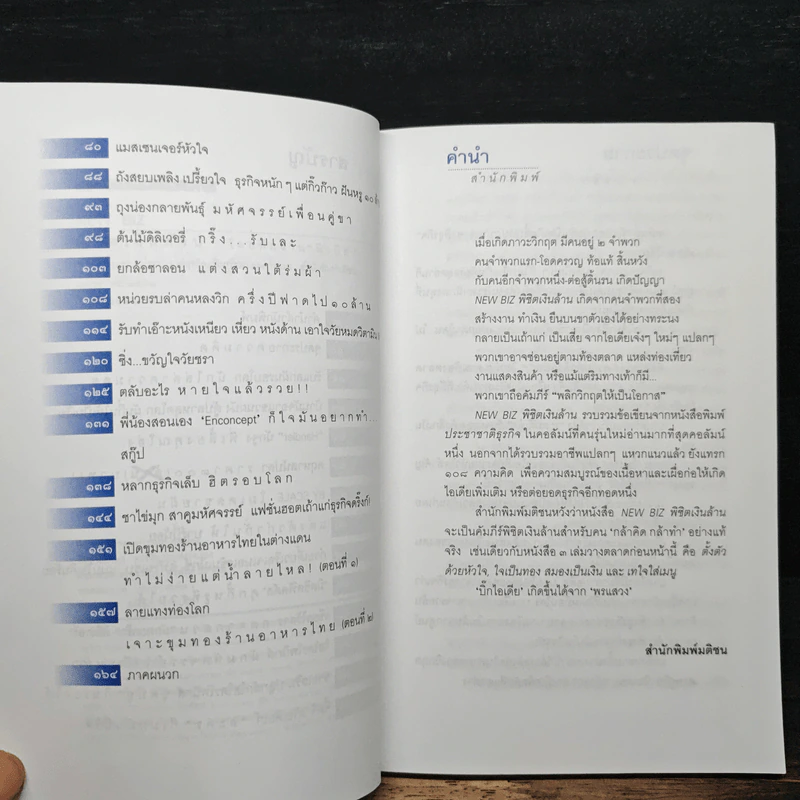 ๘๐ แมสเซนเจอร์หัวใจ
๘๘ ถังสยบเพลิง เปรี้ยวใจ ธุรกิจหนักๆ แต่กิ๊วก๊าว ฝันหรู ๑๐
๙๓ ถุงน่องกลายพันธุ์ มหัศจรรย์เพื่อนคู่ขา
๙๘ ต้นไม้ดิลิเวอรี่ กริ๊ง...รับเละ
๑๐๓ ยกล้อซาลอน แต่งสวนใต้ร่มผ้า
๑๐๘ หน่วยรบล่าคนหลงวิก ครึ่งปีฟาดไป๑๐ล้าน
๑๑๔ รับทำเอ๊าะหนังเหนียว เหี่ยว หนังด้าน เอาใจวัยหมดวิตามิน
๑๒๐ ซิ่ง...ขวัญใจวัยชรา
๑๒๕ ตลับอะไร หายใจแล้วรวย!!
๑๓๑ พี่น้องสอนเอง 'Enconcept' ก็ใจมันอยากทำ...
สกู๊ป
๑๓๘ หลากธุรกิจเล็บ ฮิตรอบโลก
๑๔๔ ชาไข่มุก สาคูมหัศจรรย์ แฟชั่นฮอตเถ้าแก่ธุรกิจดริ๊งก์
๑๕๑ เปิดขุมทองร้านอาหารไทยในต่างแดน
ทำไม่ง่ายแต่น้ำลายไหล! (ตอนที่ ๑)
๑๕๗ ลายแทงท่องโลก
เจาะขุมทองร้านอาหารไทย (ตอนที่ ๒)
๑๖๔ ภาคผนวก
คำนำ
สำนักพิมพ์
เมื่อเกิดภาวะวิกฤต มีคนอยู่ ๒ จำพวก
คนจำพวกแรก-โอดครวญ ท้อแท้ สิ้นหวัง
กับคนอีกจำพวกหนึ่ง-ต่อสู้ดิ้นรน เกิดปัญญา
NEW BIZ พิชิตเงินล้าน เกิดจากคนจำพวกที่สอง
สร้างงาน ทำเงิน ยืนบนขาตัวเองได้อย่างทระนง
กลายเป็นเถ้าแก่ เป็นเสี่ย จากไอเดียเจ๋งๆ ใหม่ๆ แปลกๆ
พวกเขาอาจซ่อนอยู่ตามท้องตลาด แหล่งท่องเที่ยว
งานแสดงสินค้า หรือแม้แต่ริมทางเท้าก็มี...
พวกเขาถือคัมภีร์ "พลิกวิกฤตให้เป็นโอกาส"
NEW BIZ พิชิตเงินล้าน รวบรวมข้อเขียนจากหนังสือพิมพ์
ประชาชาติธุรกิจ ในคอลัมน์ที่คนรุ่นใหม่อ่านมากที่สุดคอลัมน์
หนึ่ง นอกจากได้รวบรวมอาชีพแปลกๆ แหวกแนวแล้ว ยังแทรก
๑๐๘ ความคิด เพื่อความสมบูรณ์ของเนื้อหาและเผื่อก่อให้เกิด
ไอเดียเพิ่มเติม หรือต่อยอดธุรกิจอีกทอดหนึ่ง
สำนักพิมพ์มติชนหวังว่าหนังสือ NEW BIZ พิชิตเงินล้าน
จะเป็นคัมภีร์พิชิตเงินล้านสำหรับคน 'กล้าคิด กล้าทำ' อย่างแท้
จริง เช่นเดียวกับหนังสือ ๓ เล่มวางตลาดก่อนหน้านี้ คือ ตั้งตัว
ด้วยหัวใจ, ใจเป็นทอง สมองเป็นเงิน และ เทใจใส่เมนู
'บิ๊กไอเดีย' เกิดขึ้นได้จาก 'พรแสวง'
สำนักพิมพ์มติชน